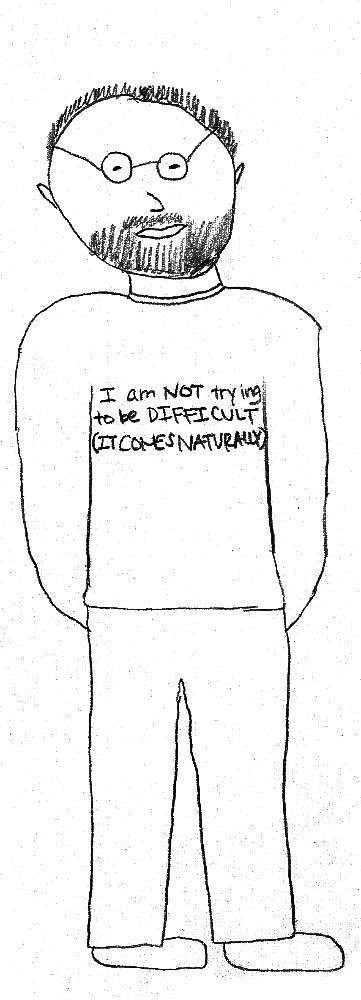 I am NOT trying
to be DIFFICULT
(IT COMES NATURALLY)